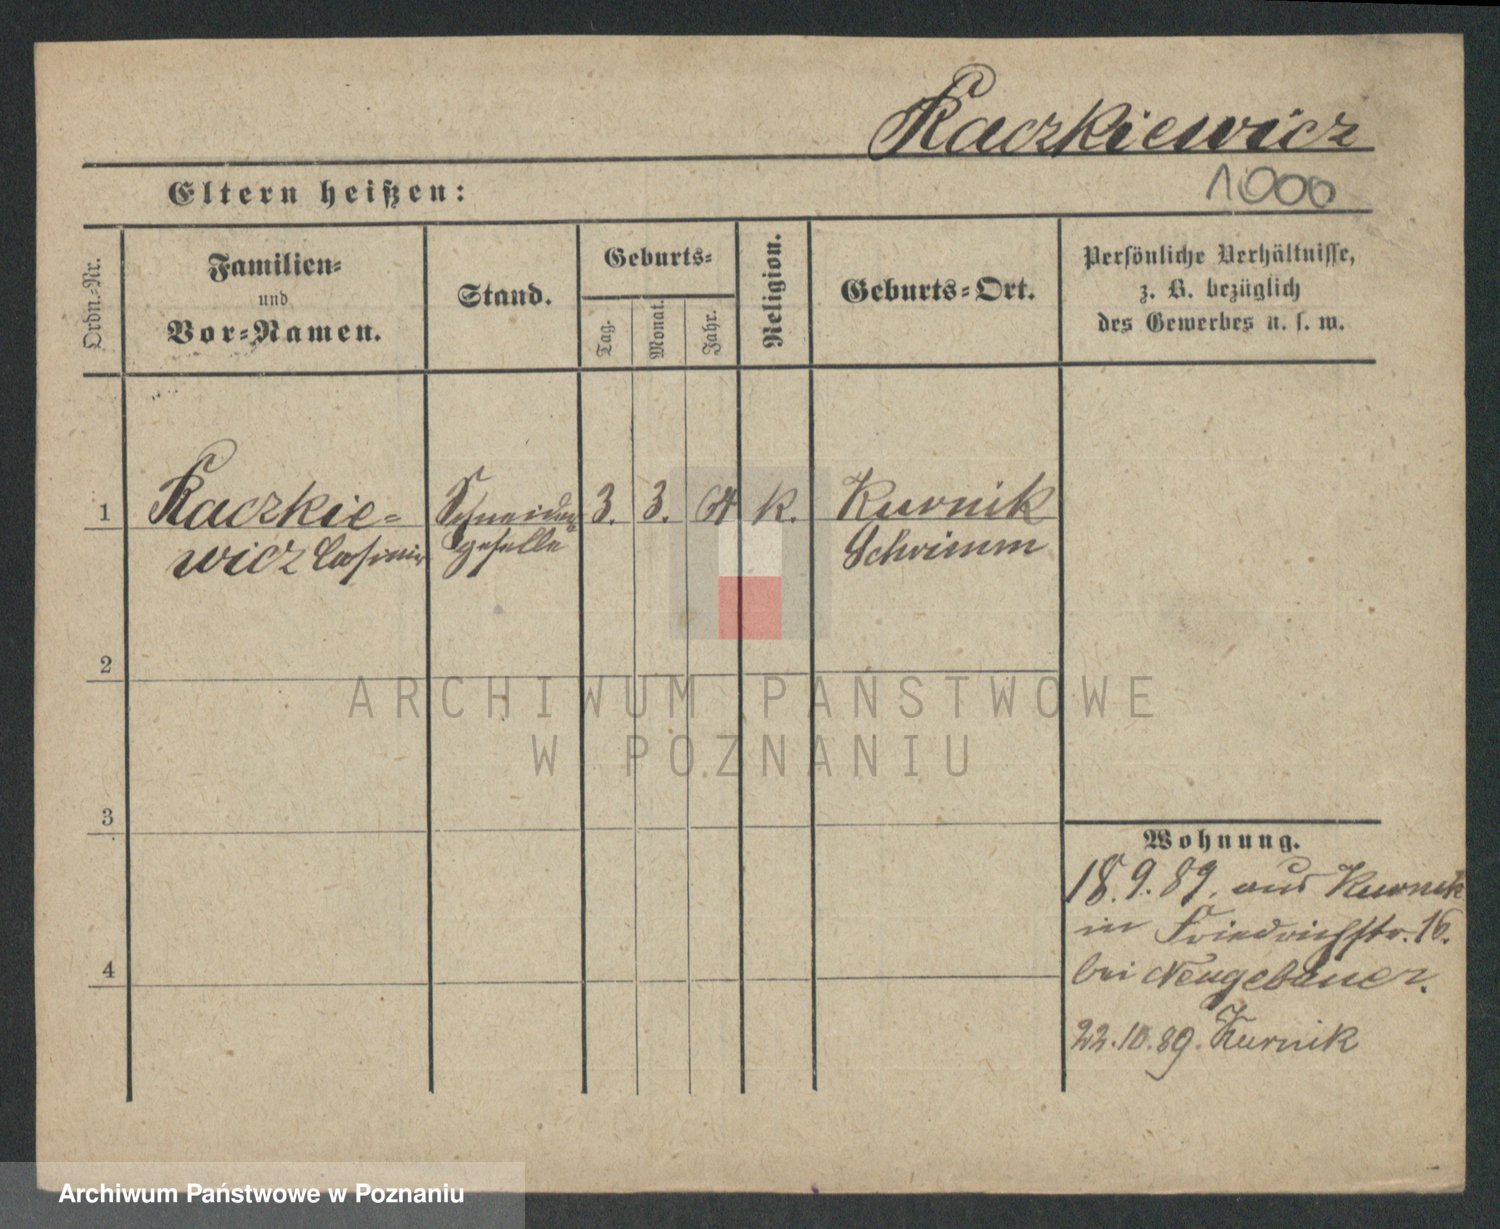 Kaczkiewicz
1000
Eltern heißen:
Ordn.-Nr.
Familien-
und
Vor-Namen.
Stand.
Geburts-
Tag.
Monat.
Jahr.
Religion.
Geburts-Ort.
Persönliche Verhältnisse,
z. B. bezüglich
des Gewerbes u. s. w.
1
Kaczkie-
wicz Casimir
Schneider-
geselle
3.
3.
64
K.
Kurnik
Schrimm
2
3
4
Wohnung.
18.9.89. aus Kurnik
in Friedrichstr. 16.
bei Neugebauer.
22.10.89. Kurnik
ARCHIWUM PAŃSTWOWE
W POZNANIU
Archiwum Państwowe w Poznaniu